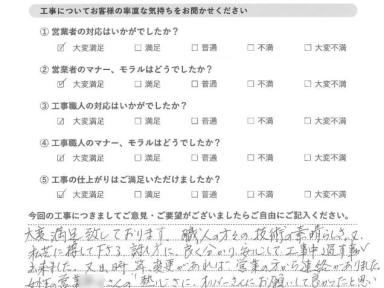 工事についてお客様の率直な気持ちをお聞かせください
① 営業者の対応はいかがでしたか？
☑ 大変満足 □ 満足 □ 普通 □ 不満 □ 大変不満
② 営業者のマナー、モラルはどうでしたか？
☑ 大変満足 □ 満足 □ 普通 □ 不満 □ 大変不満
③ 工事職人の対応はいかがでしたか？
☑ 大変満足 □ 満足 □ 普通 □ 不満 □ 大変不満
④ 工事職人のマナー、モラルはどうでしたか？
☑ 大変満足 □ 満足 □ 普通 □ 不満 □ 大変不満
⑤ 工事の仕上がりはご満足いただけましたか？
☑ 大変満足 □ 満足 □ 普通 □ 不満 □ 大変不満
今回の工事につきましてご意見・ご要望がございましたらご自由にご記入ください。
大変満足致しております。職人の方々の技術の素晴らしさ、又
に接して下さる誠実さに、良く分かり、安心して工事中過す事が
出来ました。又日時等変更があれば、営業の方から連絡がありました。
女性の営業 さんの熱心さに、オリバーさんにお願いして良かったと思い